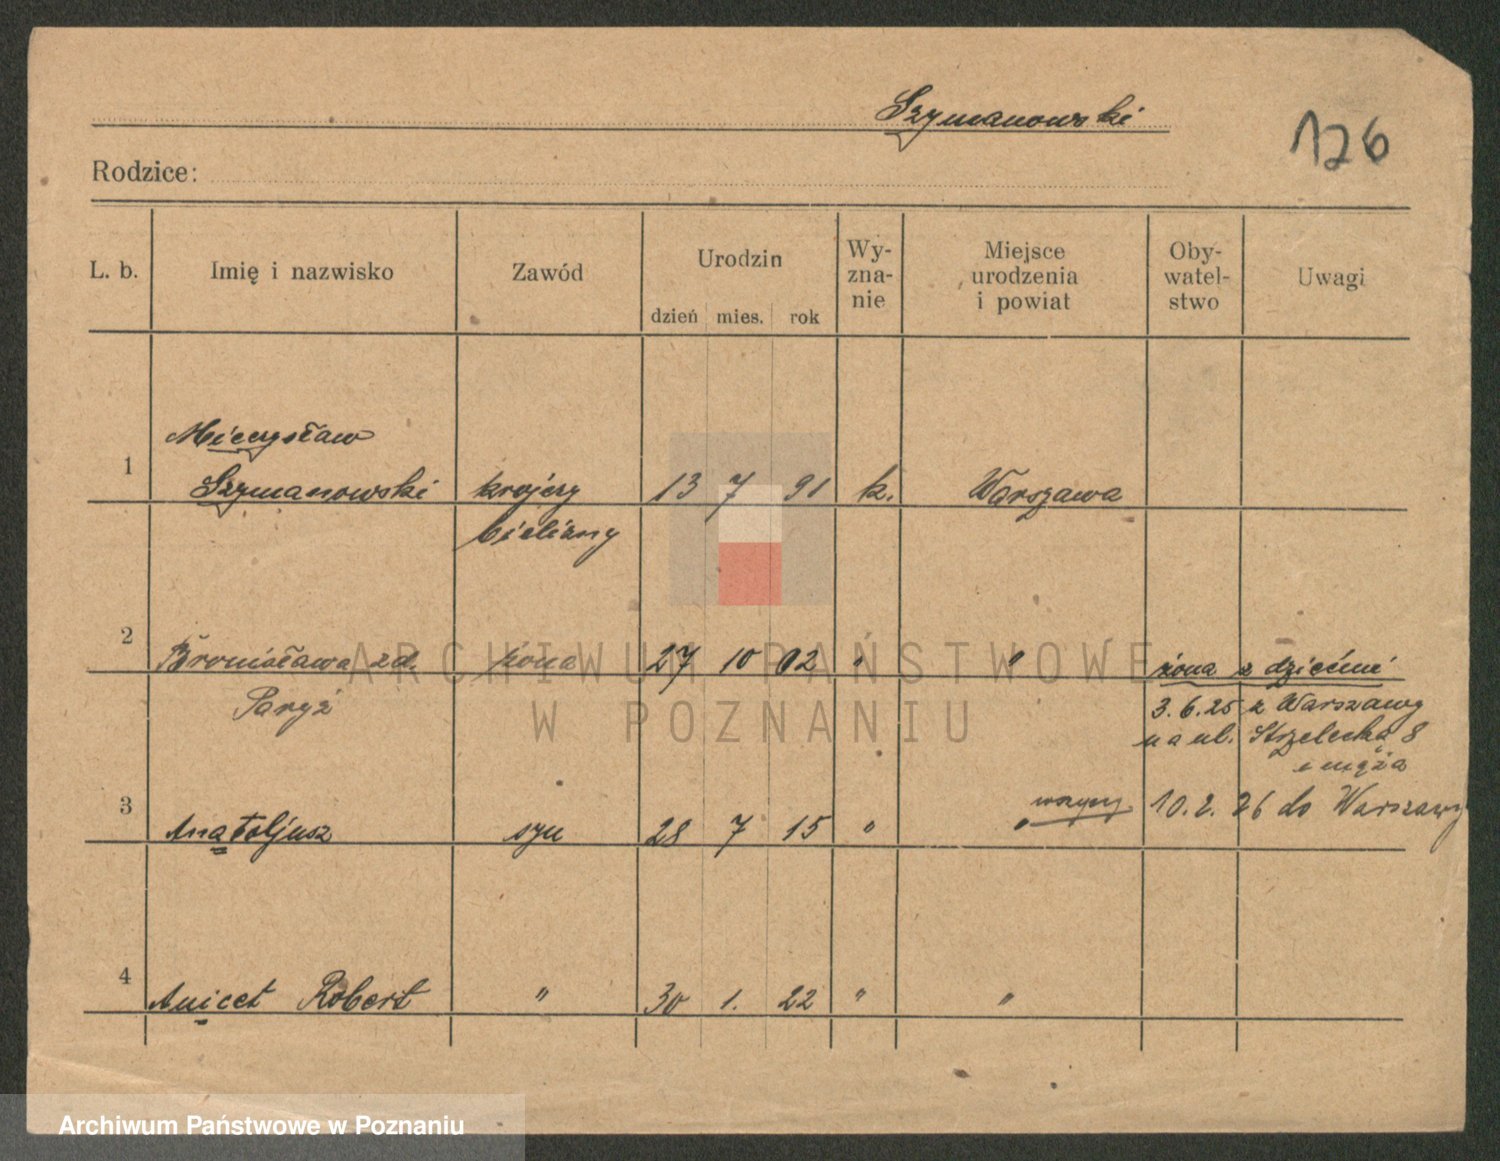 Szymanowski
126
Rodzice:
L. b.
Imię i nazwisko
Zawód
Urodzin
dzień mies. rok
Wy-
zna-
nie
Miejsce
urodzenia
i powiat
Oby-
watel-
stwo
Uwagi
Mieczysław
1 Szymanowski krojczy 13 7 91 k. Warszawa
bielizny
2 Bronisława zd. żona 27 10 02 " " żona z dziećmi
Paryż 3.6.25 z Warszawy
na ul. Strzelecka 8
i męża
wszyscy 10. 2. 26 do Warszawy
3 Anatoljusz syn 28 7 15 " "
4 Anicet Robert " 30 1. 22 " "
ARCHIWUM PAŃSTWOWE
W POZNANIU
Archiwum Państwowe w Poznaniu